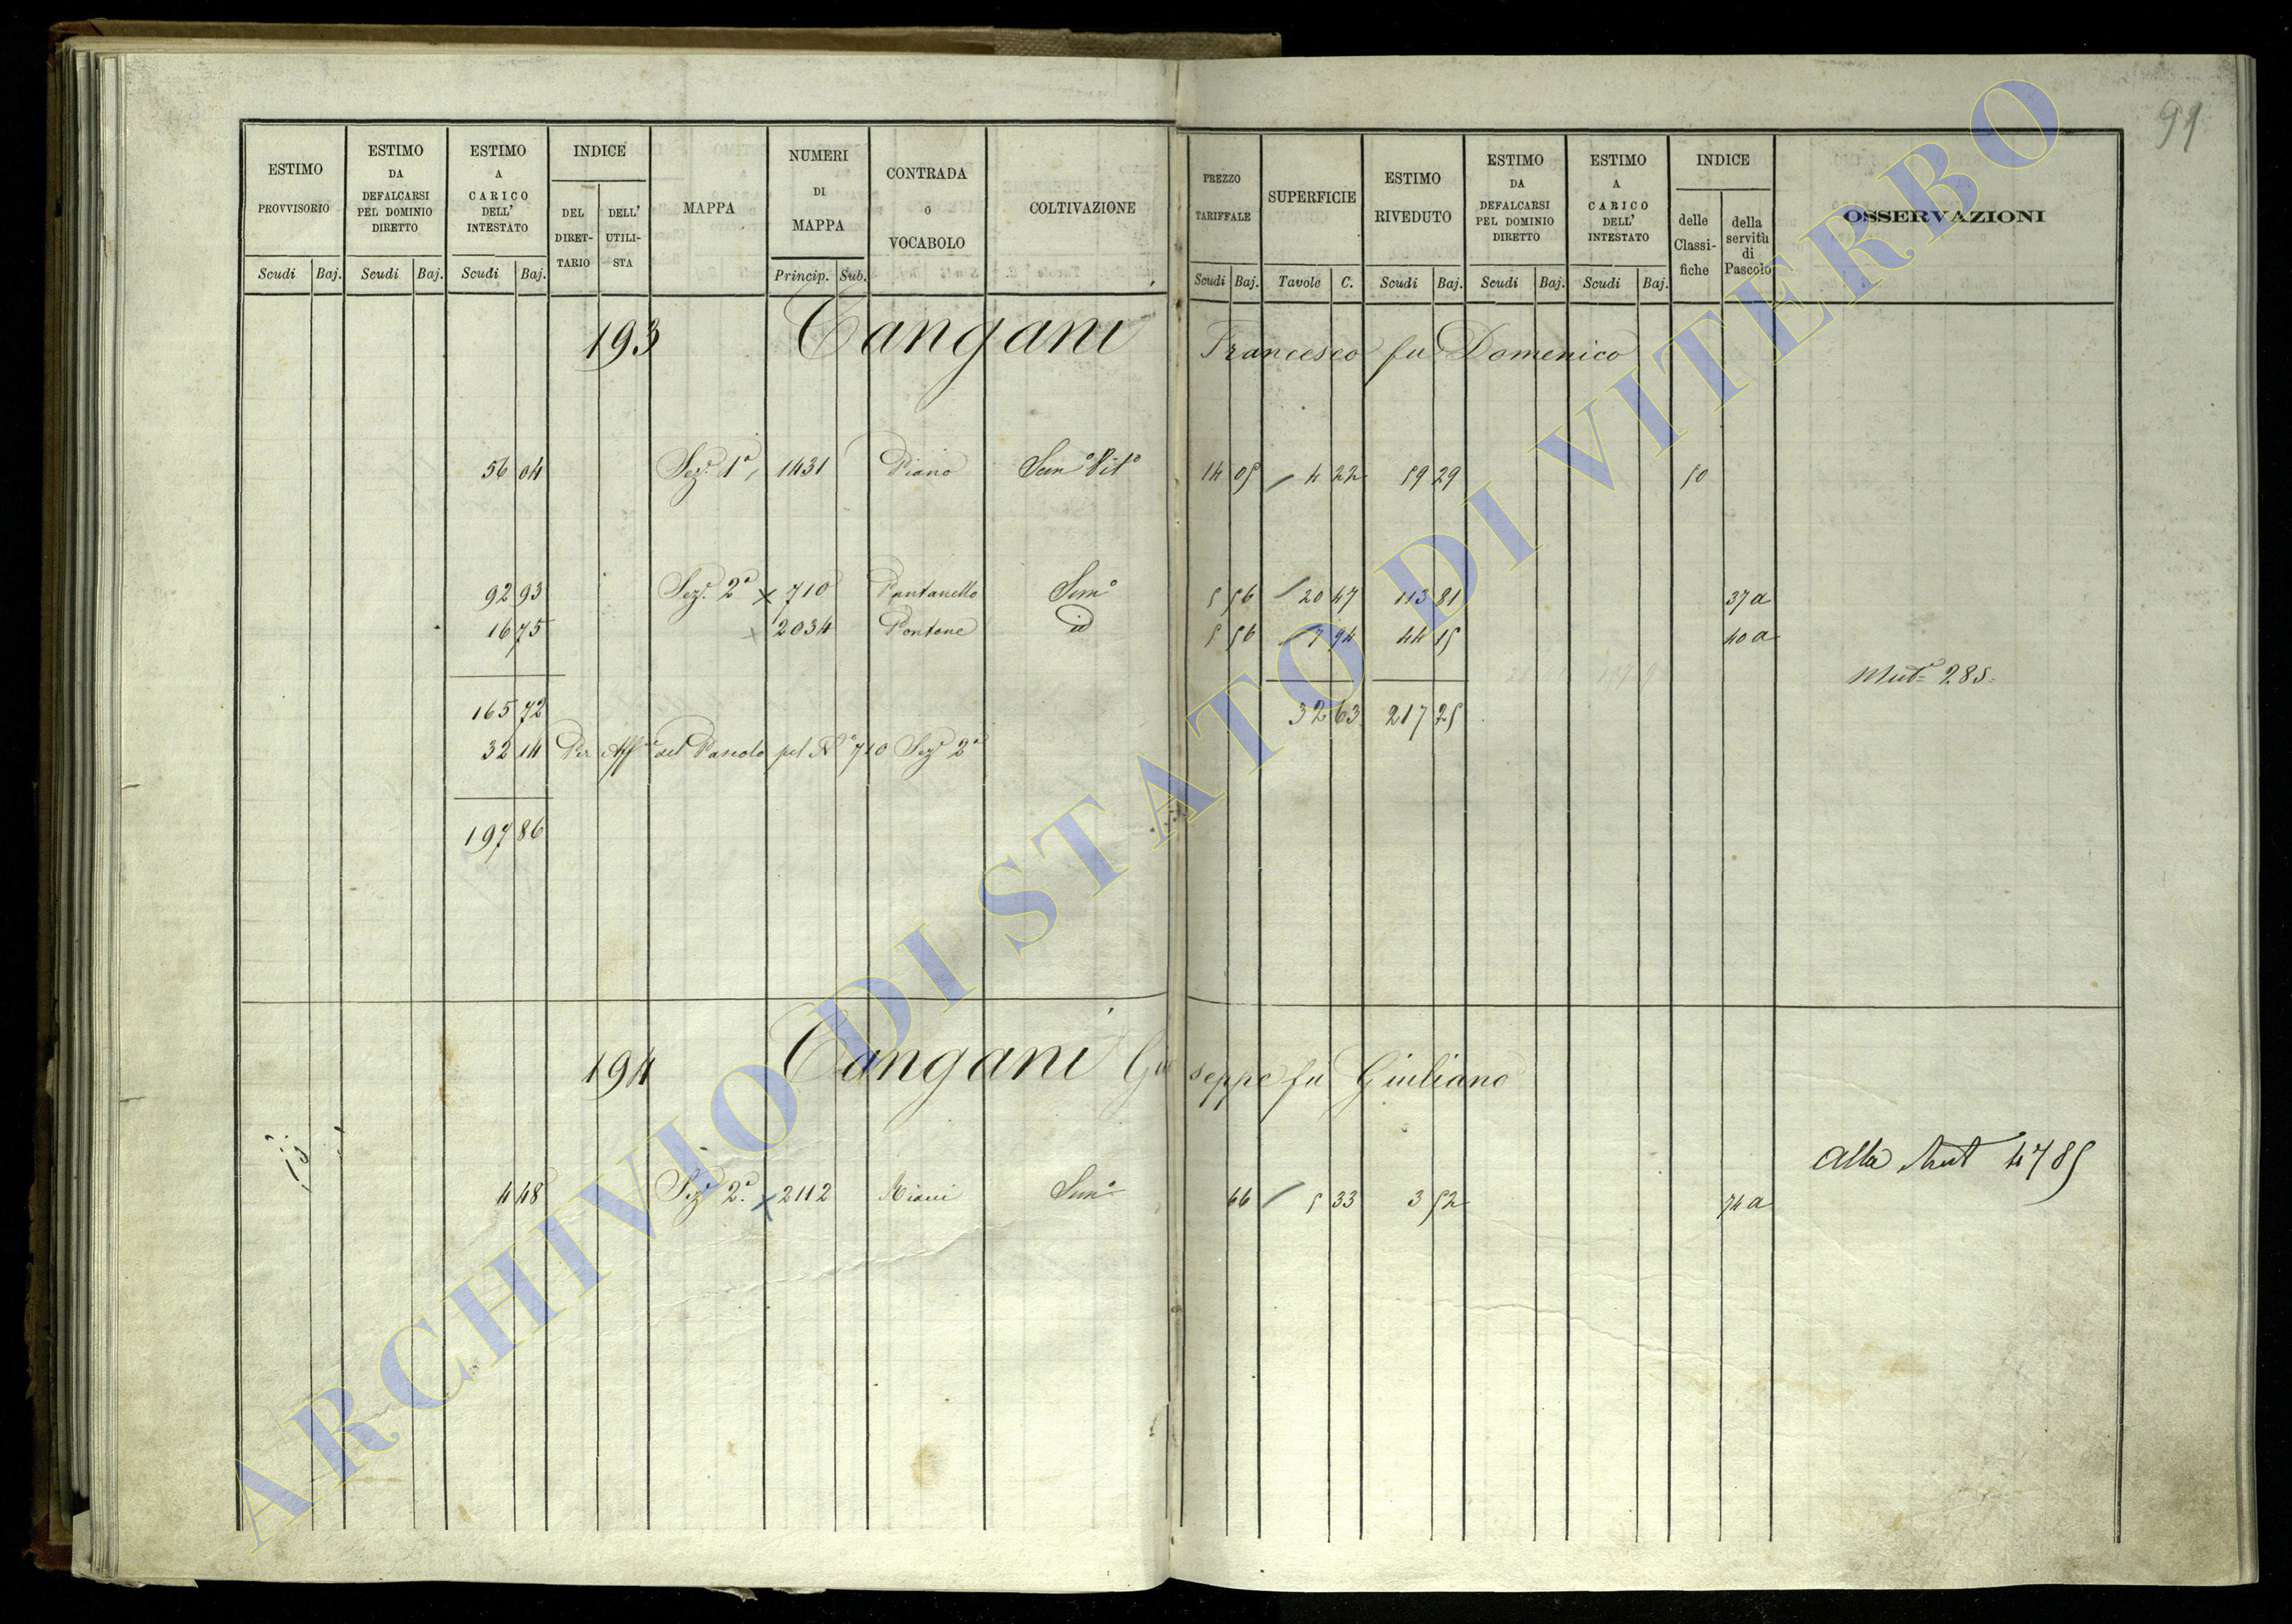 91
ESTIMO PROVVISORIO Scudi Baj. ESTIMO DA DEFALCARSI PEL DOMINIO DIRETTO Scudi Baj. ESTIMO A CARICO DELL' INTESTATO Scudi Baj. INDICE DEL DIRET- TARIO DELL' UTILI- STA MAPPA NUMERI DI MAPPA Princip. Sub. CONTRADA o VOCABOLO COLTIVAZIONE PREZZO TARIFFALE Scudi Baj. SUPERFICIE Tavole C. ESTIMO RIVEDUTO Scudi Baj. ESTIMO DA DEFALCARSI PEL DOMINIO DIRETTO Scudi Baj. ESTIMO A CARICO DELL' INTESTATO Scudi Baj. INDICE delle Classi- fiche della servitù di Pascolo OSSERVAZIONI
193 Cangani Francesco fu Domenico
56 04 Sez.e 1a 1431 Piano Semo Vito 14 05 4 22 59 29 50
92 93 Sez.e 2a x 710 Pantanello Semo 5 56 20 47 113 81 37 a
16 75 x 2034 Pontone id 5 56 7 94 44 15 40 a
Muta 285
165 72 32 63 217 25
32 14 Per Aff.ne del Pascolo pel No 710 Seze 2a
197 86
194 Cangani Giuseppe fu Giuliano
Alla Mut 4785
4 48 Seze 2a x 2112 Miani Semo 66 5 33 3 52 74 a
ARCHIVIO DI STATO DI VITERBO